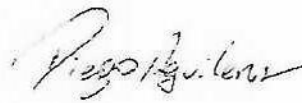 Diego Aguilera